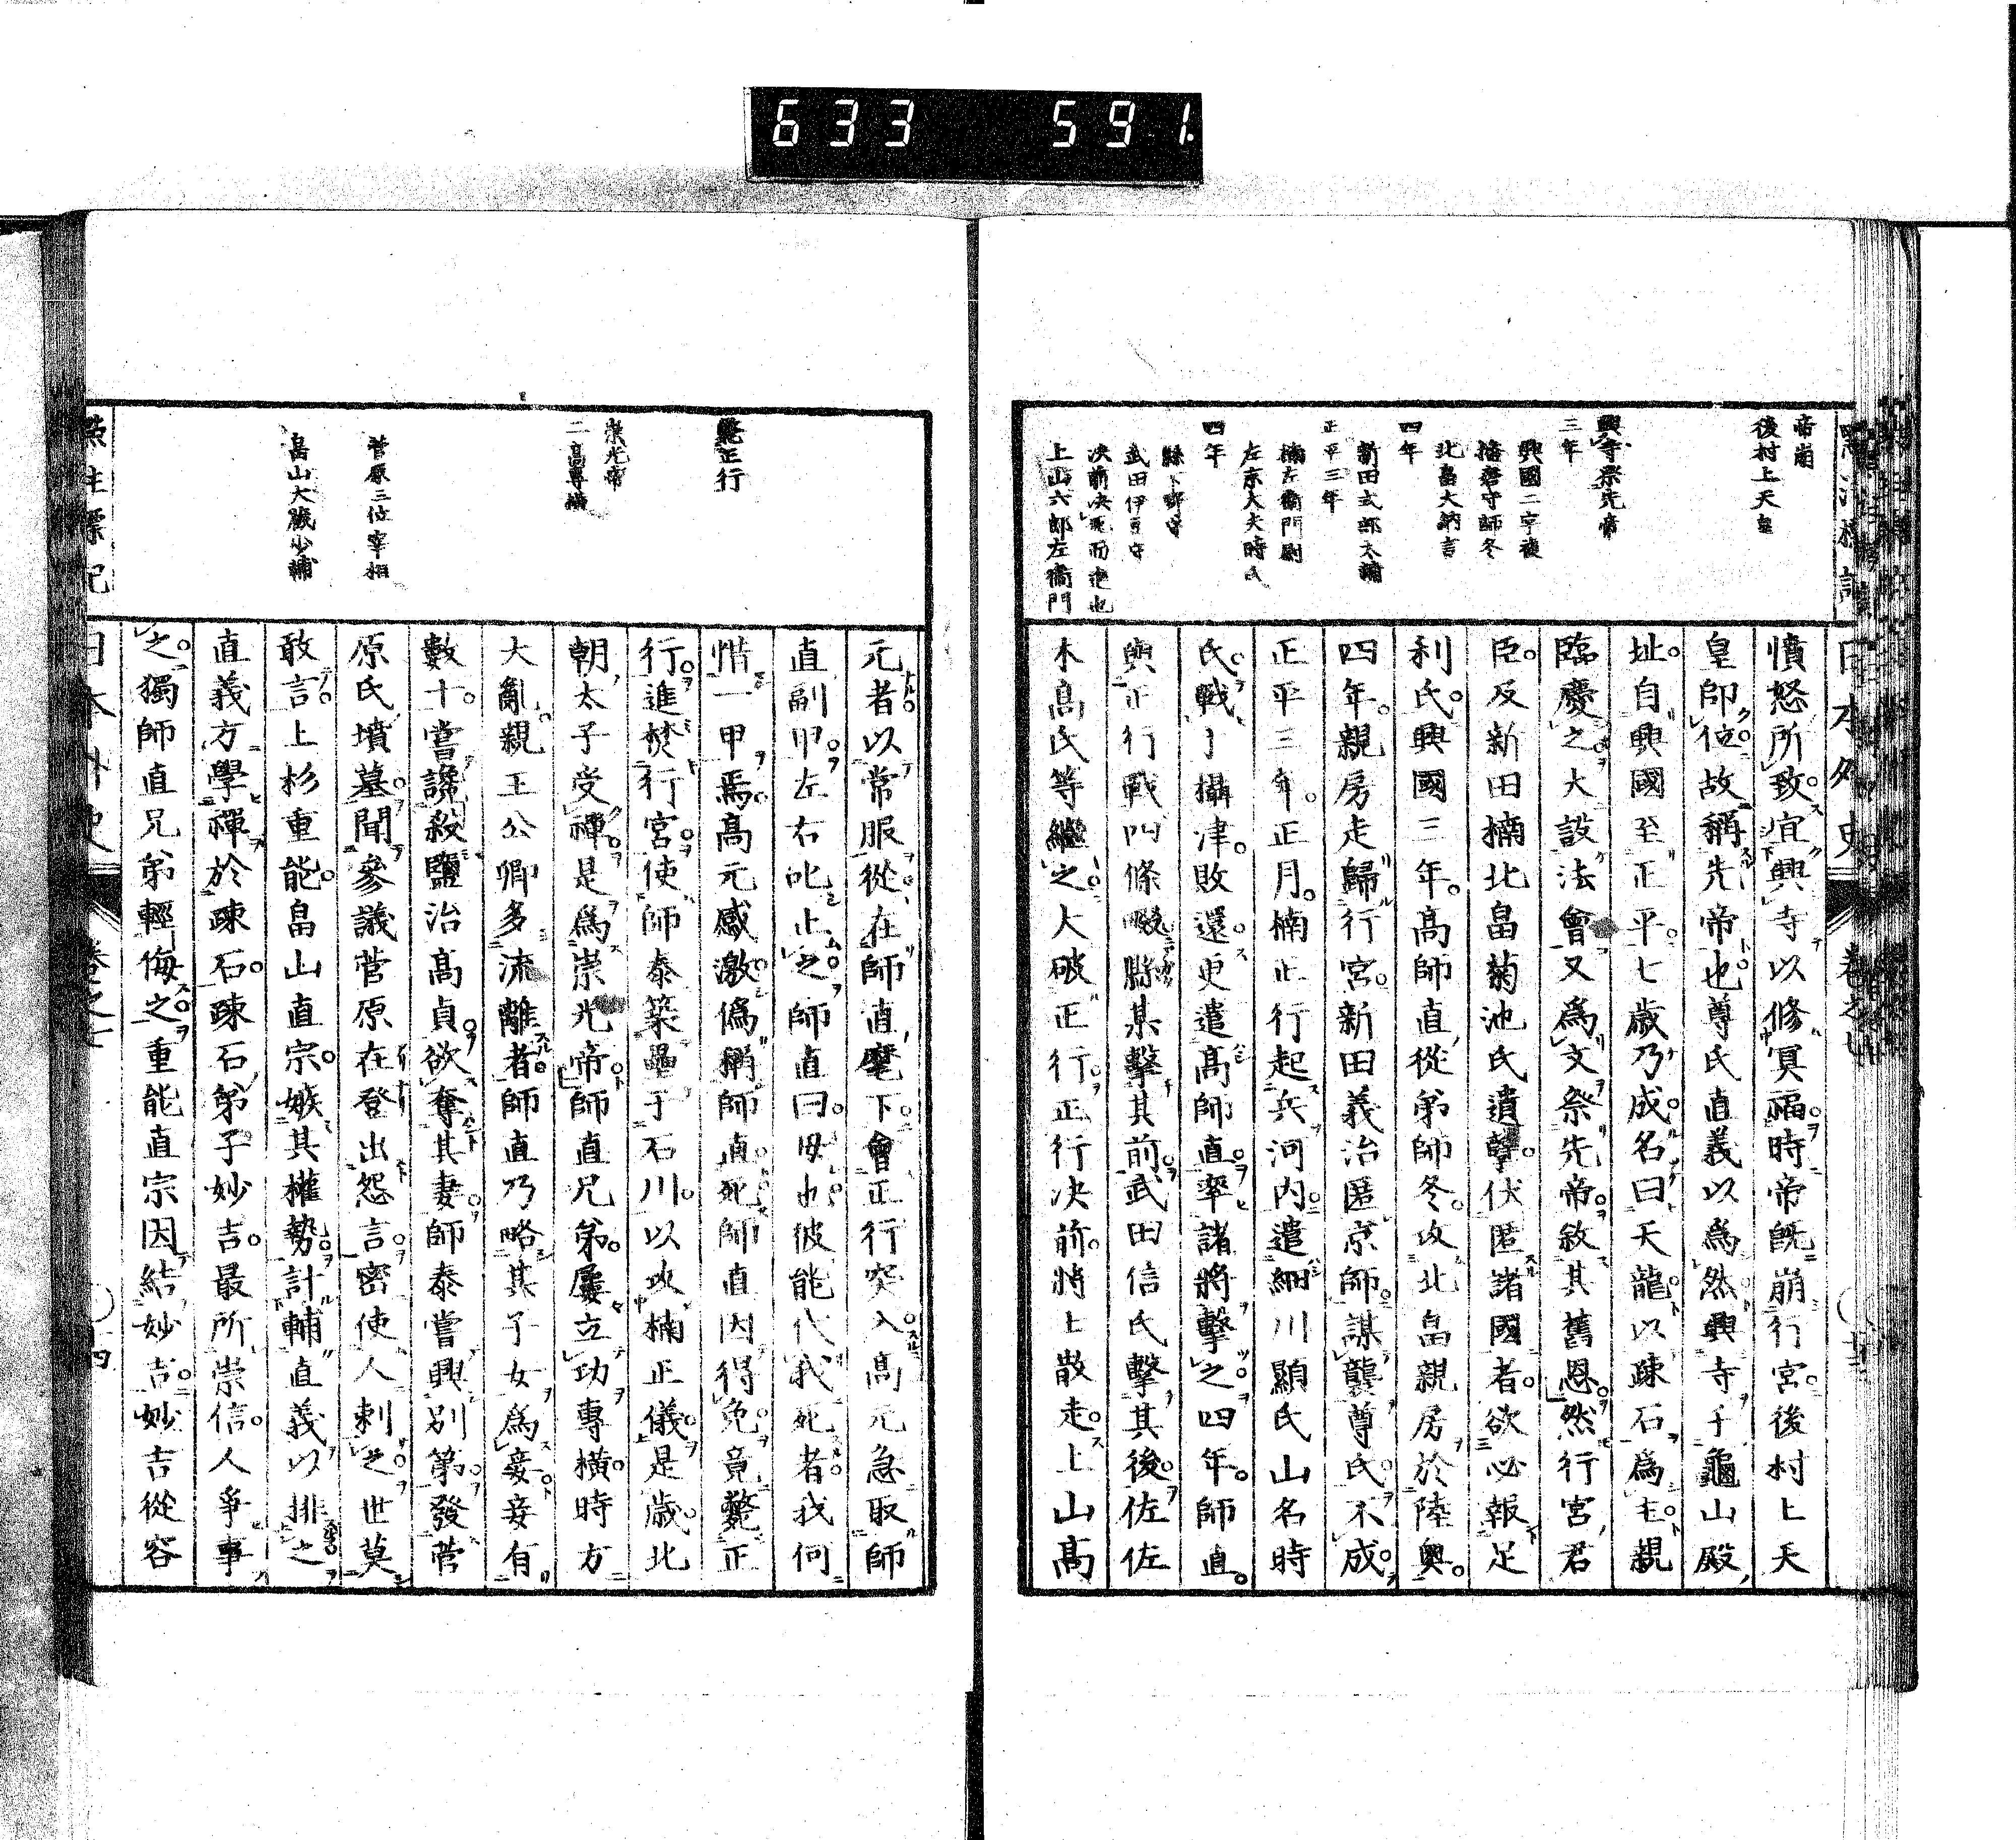 633 591
帝崩
後村上天皇
興寺祭先帝
三年
興國二字複
播磨守師冬
北畠大納言
四年
新田式部大輔
正平三年
楠左衞門尉
左京大夫時氏
四年
縣下野守
武田伊豆守
决前决死而進也
上山六郎左衞門
憤怒所致宜興寺以修冥福時帝既崩行宮後村上天
皇卽位故稱先帝也尊氏直義以爲然興寺于龜山殿
址自興國至正平七歳乃成名曰天龍以疎石爲主親
臨慶之大設法會又爲文祭先帝敘其舊恩然行宮君
臣及新田楠北畠菊池氏遺孽伏匿諸國者欲必報足
利氏興國三年高師直從弟師冬攻北畠親房於陸奥
四年親房走歸行宮新田義治匿京師謀襲尊氏不成
正平三年正月楠正行起兵河内遣細川顯氏山名時
氏戰于攝津敗還更遣高師直率諸將擊之四年師直
與正行戰四條畷縣某擊其前武田信氏擊其後佐佐
木高氏等繼之大破正行正行决前將士散走上山高
日本外史
卷之七
斃正行
崇光帝
二高專橫
菅原三位宰相
畠山大藏少輔
元者以常服從在師直麾下會正行突入高元急取師
直副甲左右叱止之師直曰毋也彼能代我死者我何
惜一甲焉高元感激僞稱師直死師直因得免竟斃正
行進焚行宮使師泰築壘于石川以攻楠正儀是歳北
朝太子受禪是爲崇光帝師直兄弟屢立功專橫時方
大亂親王公卿多流離者師直乃略其子女爲妾妾有
數十嘗讒殺鹽治高貞欲奪其妻師泰嘗興別第發菅
原氏墳墓聞參議菅原在登出怨言密使人刺之世莫
敢言上杉重能畠山直宗嫉其權勢計輔直義以排之
直義方學禪於疎石疎石弟子妙吉最所崇信人爭事
之獨師直兄弟輕侮之重能直宗因結妙吉妙吉從容
標記
日本外史
卷之七
四